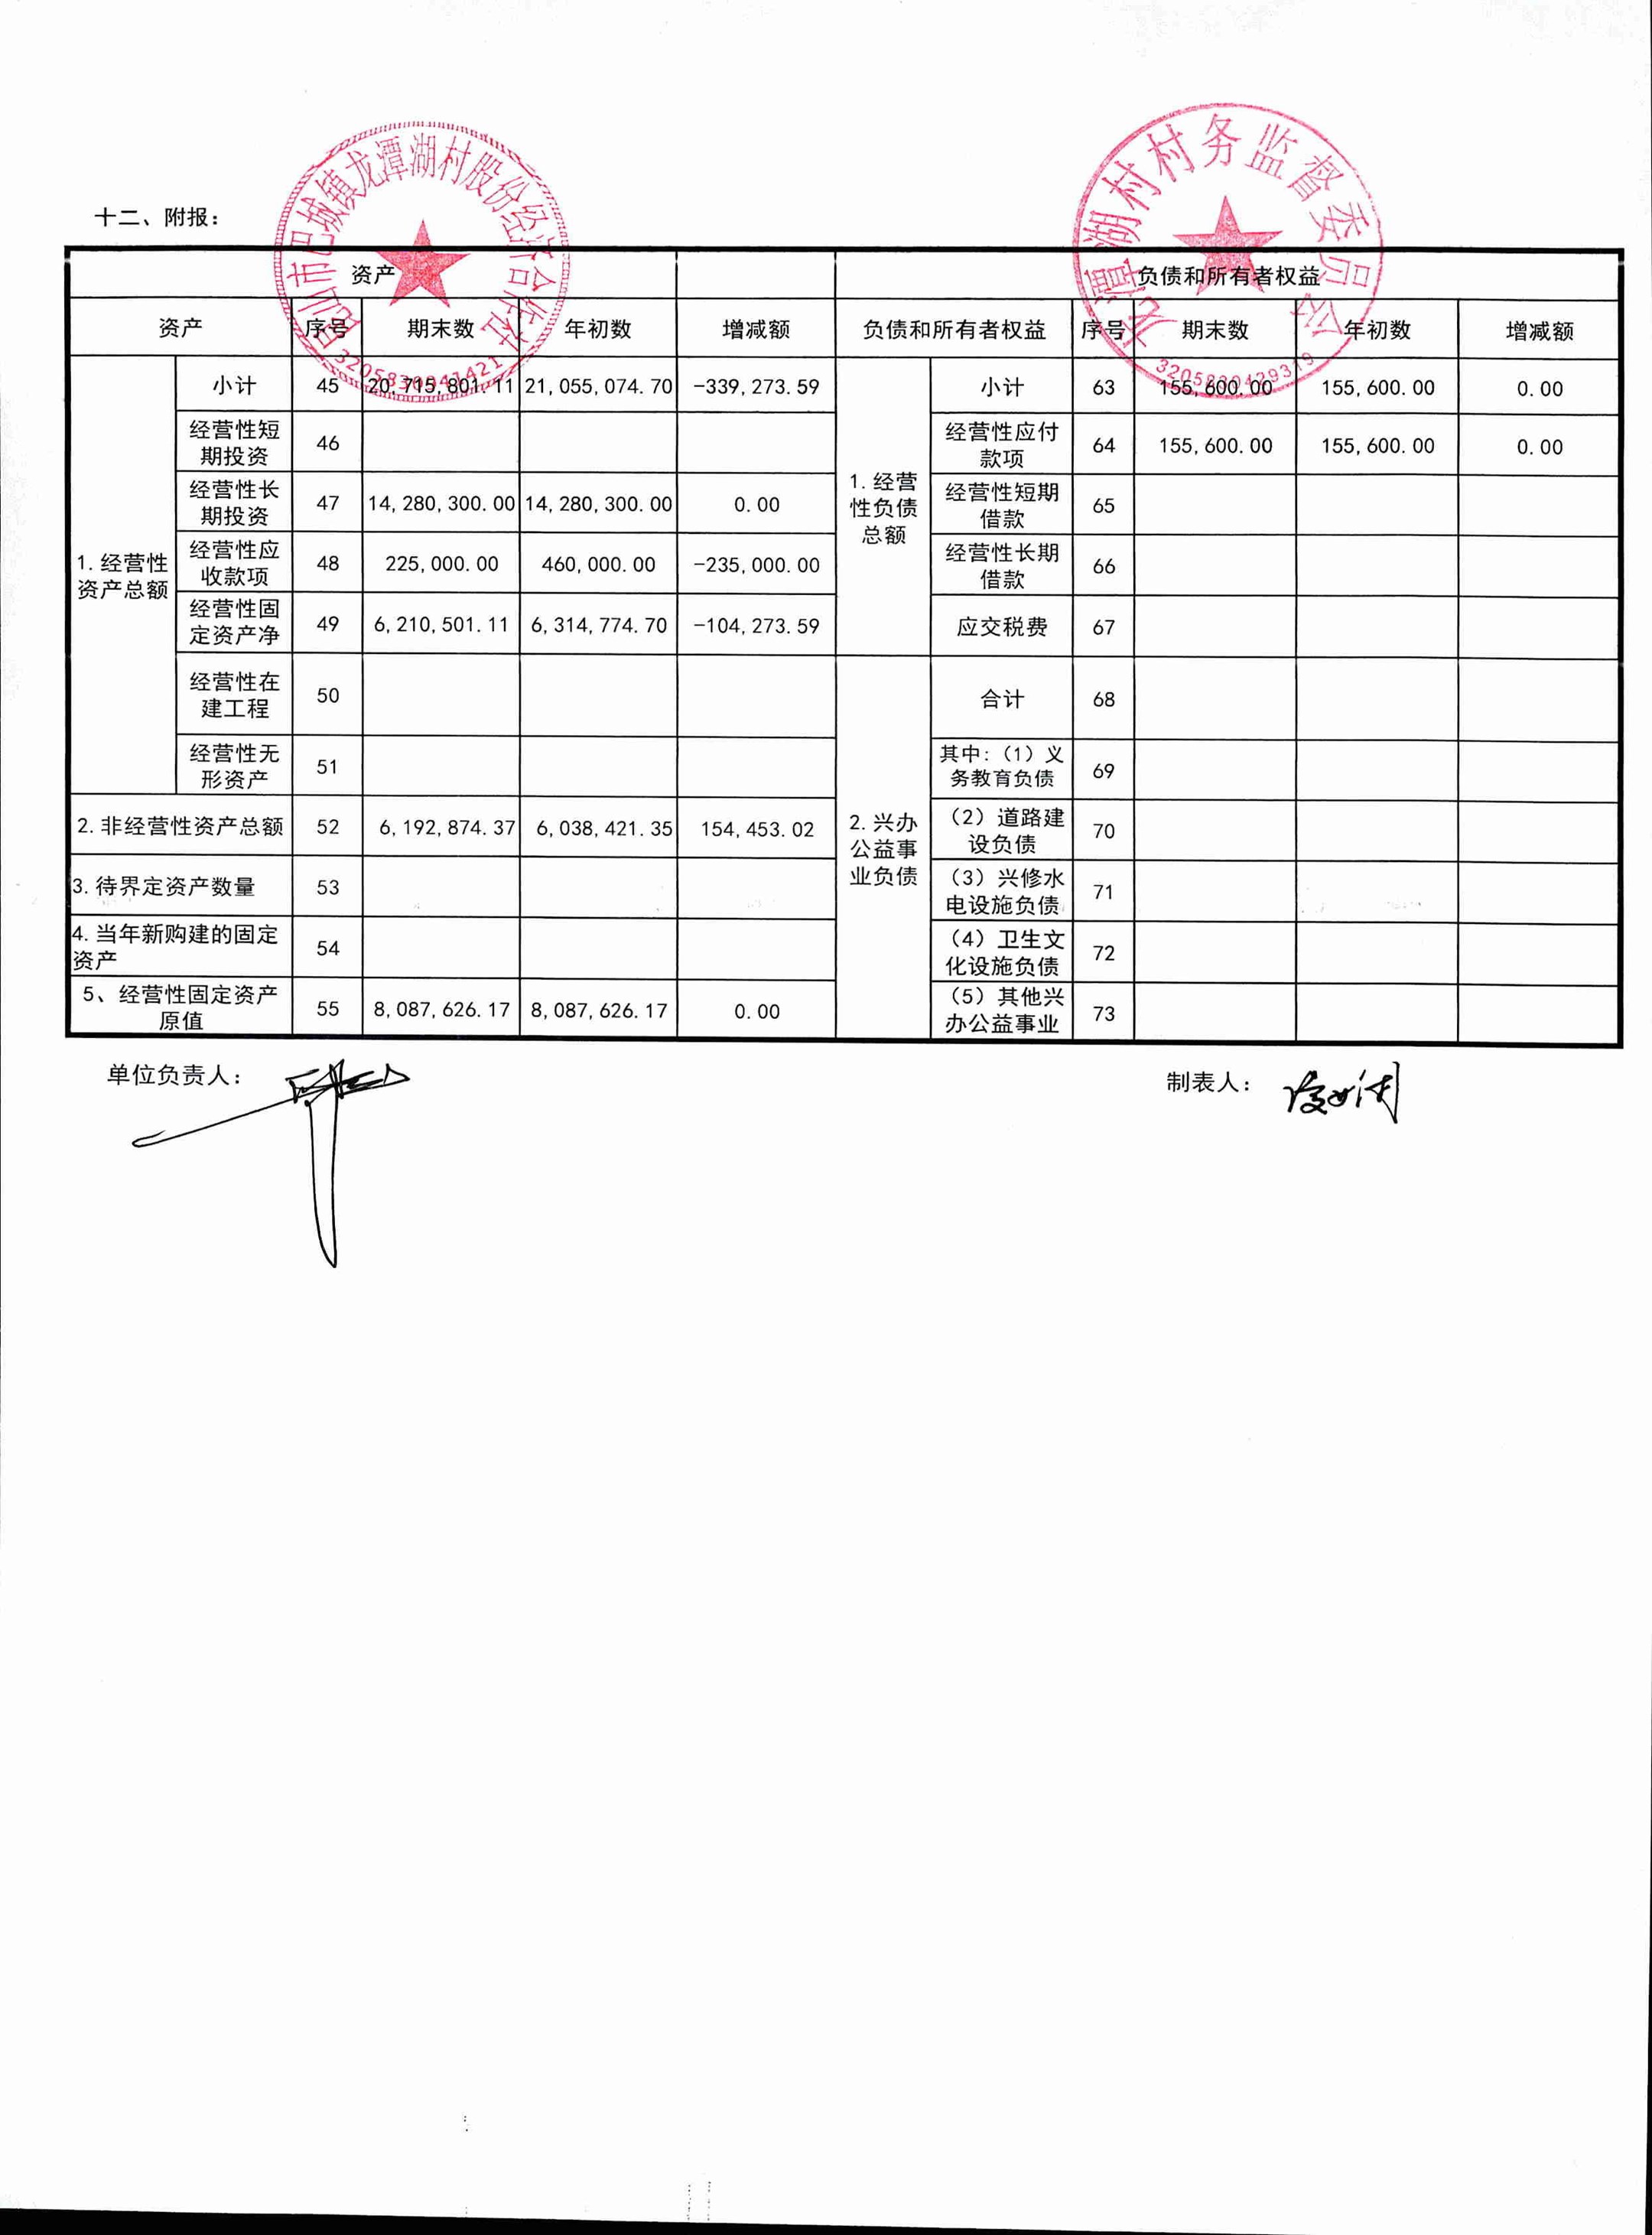 昆山市巴城镇龙潭湖村股份经济合作社
3205830941421
龙潭湖村村务监督委员会
3205830429319
十二、附报：
资产 负债和所有者权益
资产 序号 期末数 年初数 增减额 负债和所有者权益 序号 期末数 年初数 增减额
1.经营性
资产总额
小计 45 20,715,801.11 21,055,074.70 -339,273.59
经营性短
期投资 46
经营性长
期投资 47 14,280,300.00 14,280,300.00 0.00
经营性应
收款项 48 225,000.00 460,000.00 -235,000.00
经营性固
定资产净 49 6,210,501.11 6,314,774.70 -104,273.59
经营性在
建工程 50
经营性无
形资产 51
2.非经营性资产总额 52 6,192,874.37 6,038,421.35 154,453.02
3.待界定资产数量 53
4.当年新购建的固定
资产 54
5、经营性固定资产
原值 55 8,087,626.17 8,087,626.17 0.00
1.经营
性负债
总额
小计 63 155,600.00 155,600.00 0.00
经营性应付
款项 64 155,600.00 155,600.00 0.00
经营性短期
借款 65
经营性长期
借款 66
应交税费 67
2.兴办
公益事
业负债
合计 68
其中:（1）义
务教育负债 69
（2）道路建
设负债 70
（3）兴修水
电设施负债 71
（4）卫生文
化设施负债 72
（5）其他兴
办公益事业 73
单位负责人：
制表人：